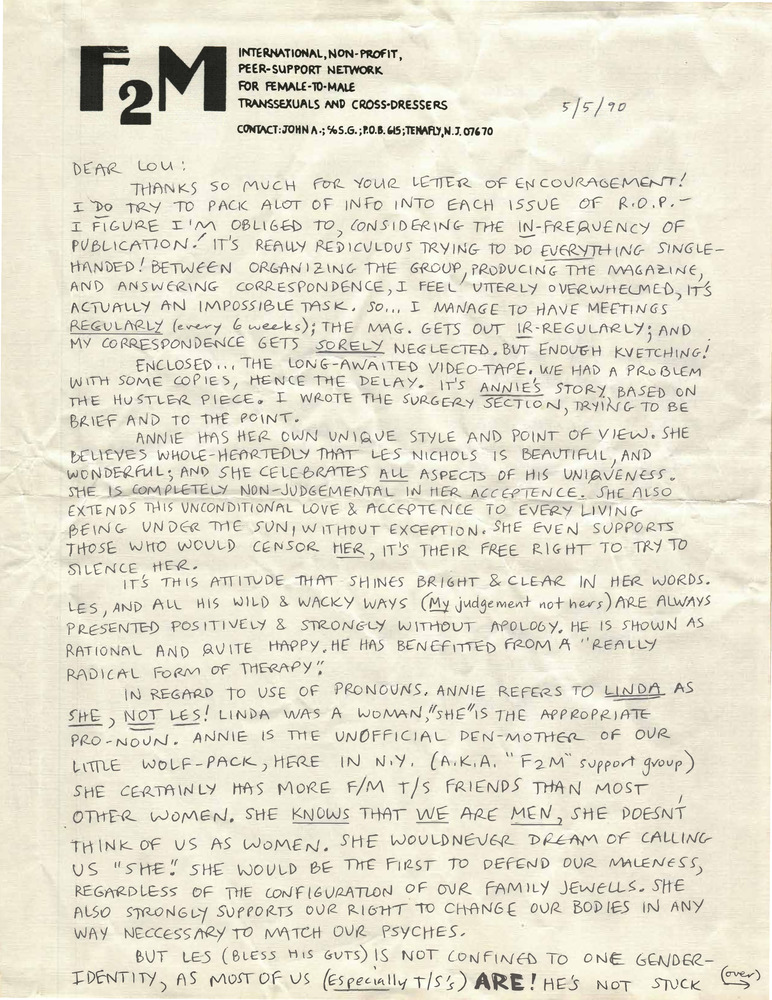 F2M
INTERNATIONAL, NON-PROFIT,
PEER-SUPPORT NETWORK
FOR FEMALE-TO-MALE
TRANSSEXUALS AND CROSS-DRESSERS
CONTACT: JOHN A.; % S.G.; P.O.B. 615; TENAFLY, N.J. 07670
5/5/90
DEAR LOU:
THANKS SO MUCH FOR YOUR LETTER OF ENCOURAGEMENT!
I DO TRY TO PACK ALOT OF INFO INTO EACH ISSUE OF R.O.P.-
I FIGURE I'M OBLIGED TO, CONSIDERING THE IN-FREQUENCY OF
PUBLICATION! IT'S REALLY REDICULOUS TRYING TO DO EVERYTHING SINGLE-
HANDED! BETWEEN ORGANIZING THE GROUP, PRODUCING THE MAGAZINE,
AND ANSWERING CORRESPONDENCE, I FEEL UTTERLY OVERWHELMED, IT'S
ACTUALLY AN IMPOSSIBLE TASK. SO... I MANAGE TO HAVE MEETINGS
REGULARLY (every 6 weeks); THE MAG. GETS OUT IR-REGULARLY; AND
MY CORRESPONDENCE GETS SORELY NEGLECTED. BUT ENOUGH KVETCHING!
ENCLOSED... THE LONG-AWAITED VIDEO-TAPE. WE HAD A PROBLEM
WITH SOME COPIES, HENCE THE DELAY. IT'S ANNIE'S STORY, BASED ON
THE HUSTLER PIECE. I WROTE THE SURGERY SECTION, TRYING TO BE
BRIEF AND TO THE POINT.
ANNIE HAS HER OWN UNIQUE STYLE AND POINT OF VIEW. SHE
BELIEVES WHOLE-HEARTEDLY THAT LES NICHOLS IS BEAUTIFUL, AND
WONDERFUL; AND SHE CELEBRATES ALL ASPECTS OF HIS UNIQUENESS.
SHE IS COMPLETELY NON-JUDGEMENTAL IN HER ACCEPTENCE. SHE ALSO
EXTENDS THIS UNCONDITIONAL LOVE & ACCEPTENCE TO EVERY LIVING
BEING UNDER THE SUN, WITHOUT EXCEPTION. SHE EVEN SUPPORTS
THOSE WHO WOULD CENSOR HER, IT'S THEIR FREE RIGHT TO TRY TO
SILENCE HER.
IT'S THIS ATTITUDE THAT SHINES BRIGHT & CLEAR IN HER WORDS.
LES, AND ALL HIS WILD & WACKY WAYS (My judgement not hers) ARE ALWAYS
PRESENTED POSITIVELY & STRONGLY WITHOUT APOLOGY. HE IS SHOWN AS
RATIONAL AND QUITE HAPPY. HE HAS BENEFITTED FROM A "REALLY
RADICAL FORM OF THERAPY".
IN REGARD TO USE OF PRONOUNS. ANNIE REFERS TO LINDA AS
SHE, NOT LES! LINDA WAS A WOMAN, "SHE" IS THE APPROPRIATE
PRO-NOUN. ANNIE IS THE UNOFFICIAL DEN-MOTHER OF OUR
LITTLE WOLF-PACK, HERE IN N.Y. (A.K.A. "F2M" support group)
SHE CERTAINLY HAS MORE F/M T/S FRIENDS THAN MOST
OTHER WOMEN. SHE KNOWS THAT WE ARE MEN, SHE DOESN'T
THINK OF US AS WOMEN. SHE WOULDNEVER DREAM OF CALLING
US "SHE". SHE WOULD BE THE FIRST TO DEFEND OUR MALENESS,
REGARDLESS OF THE CONFIGURATION OF OUR FAMILY JEWELLS. SHE
ALSO STRONGLY SUPPORTS OUR RIGHT TO CHANGE OUR BODIES IN ANY
WAY NECCESSARY TO MATCH OUR PSYCHES.
BUT LES (BLESS HIS GUTS) IS NOT CONFINED TO ONE GENDER-
IDENTITY, AS MOST OF US (Especially T/S's) ARE! HE'S NOT STUCK (over)